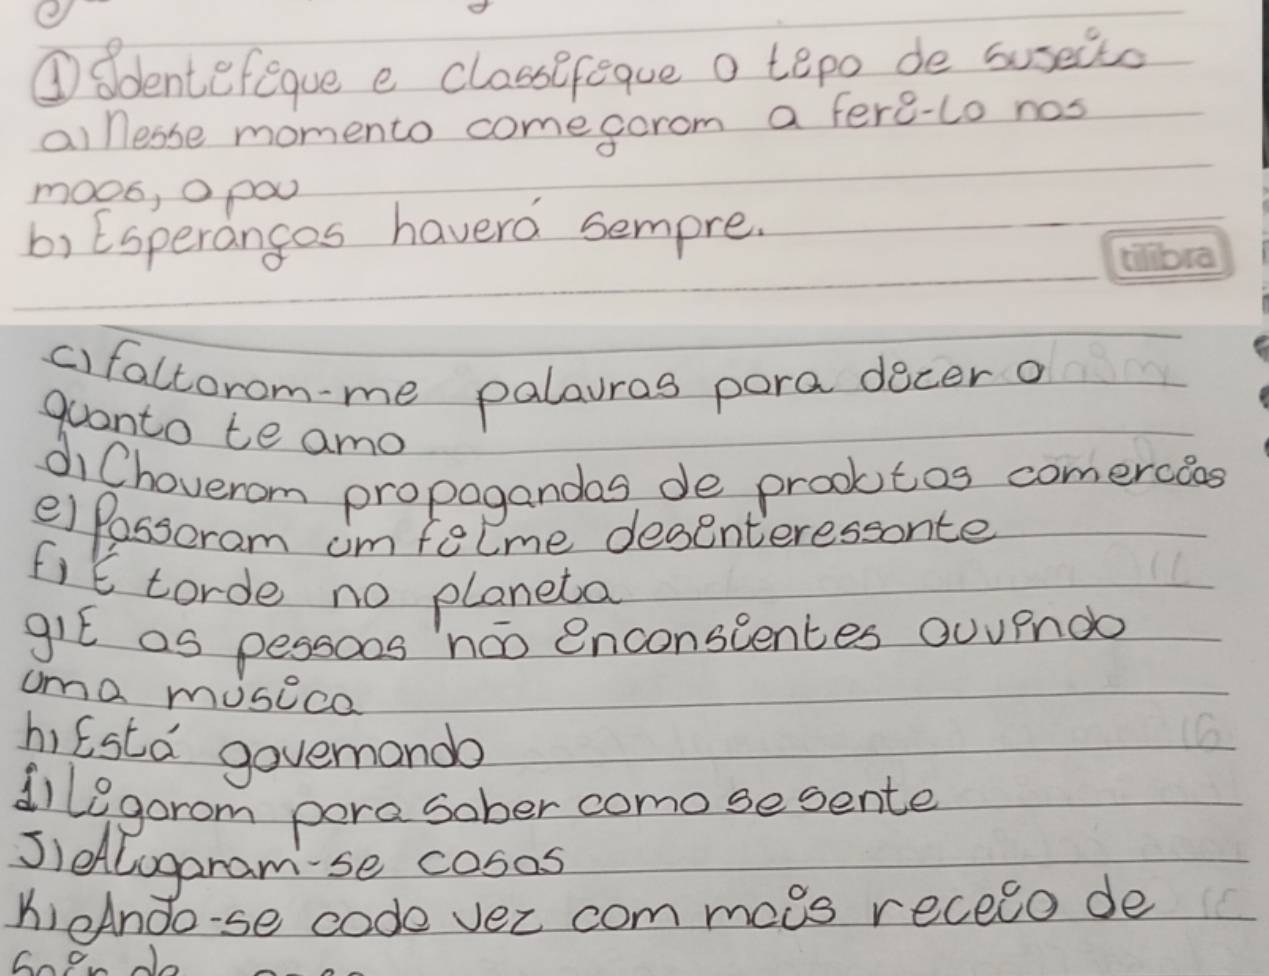 ① Identifique e classifique o tipo de suseito
a) Nesse momento começaram a feri-lo nas
maos, a pau
b) Esperanças haverá sempre.
tilibra
c) faltaram-me palavras para dizer o
quanto te amo
d) Choveram propagandas de produtos comerciais
e) Passaram um filme desinteressante
f) É tarde no planeta
g) E as pessoas não inconscientes ouvindo
uma música
h) Está governando
i) Ligaram para saber como se sente
J) Alugaram-se casas
k) Anda-se cada vez com mais receio de